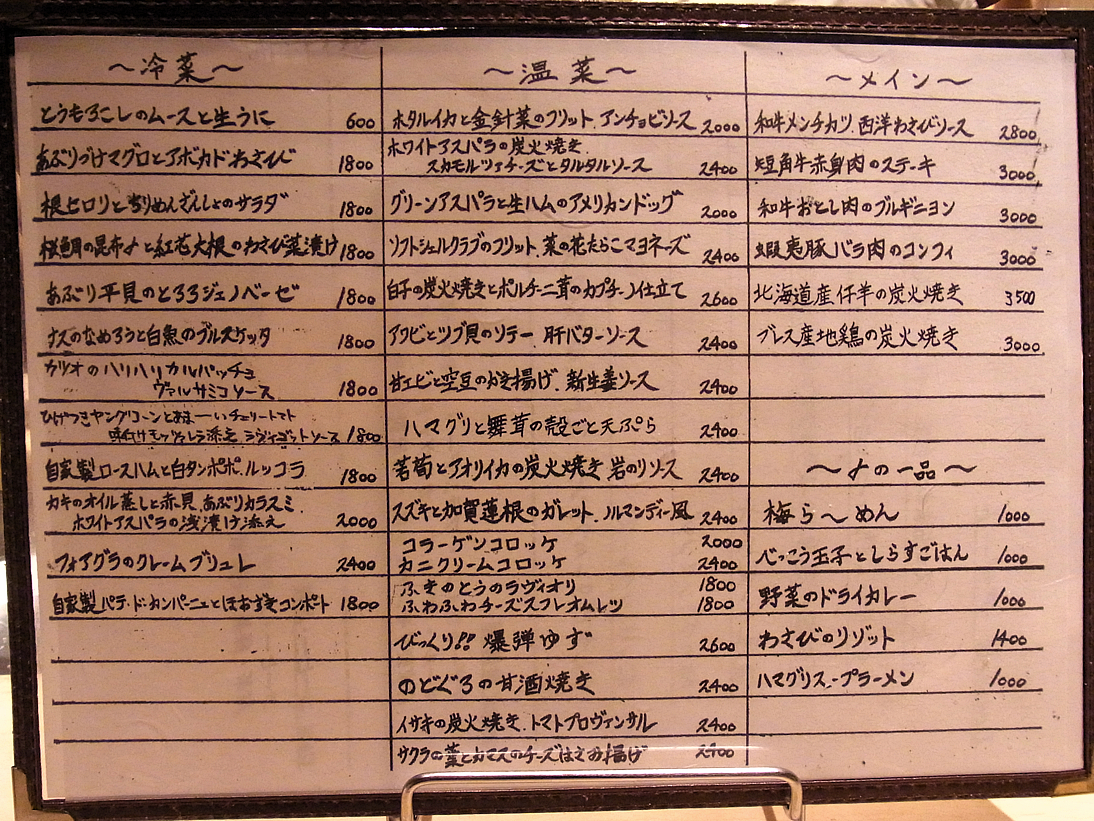 ～冷菜～
とうもろこしのムースと生うに 600
あぶりづけマグロとアボカドわさび 1800
根セロリとちりめんざんしょのサラダ 1800
桜鯛の昆布〆と紅花大根のわさび菜漬け 1800
あぶり平貝のとろろジェノベーゼ 1800
ナスのなめろうと白魚のブルスケッタ 1800
カツオのハリハリカルパッチョ
ヴァルサミコソース 1800
ひげつきヤングコーンとあまーいチェリートマト
味付けモッツァレラ添え ラヴィゴットソース 1800
自家製ロースハムと白タンポポ、ルッコラ 1800
カキのオイル蒸しと赤貝、あぶりカラスミ
ホワイトアスパラの浅漬け添え 2000
フォアグラのクレームブリュレ 2400
自家製パテ・ド・カンパーニュとほおずきコンポート 1800
～温菜～
ホタルイカと金針菜のフリット、アンチョビソース 2000
ホワイトアスパラの炭火焼き
スカモルツァチーズとタルタルソース 2400
グリーンアスパラと生ハムのアメリカンドッグ 2000
ソフトシェルクラブのフリット、菜の花たらこマヨネーズ 2400
白子の炭火焼きとポルチーニ茸のカプチーノ仕立て 2600
アワビとツブ貝のソテー、肝バターソース 2400
甘エビと空豆のかき揚げ、新生姜ソース 2400
ハマグリと舞茸の殻ごと天ぷら 2400
若筍とアオリイカの炭火焼き、岩のりソース 2400
スズキと加賀蓮根のガレット、ノルマンディー風 2400
コラーゲンコロッケ 2000
カニクリームコロッケ 2400
ふきのとうのラヴィオリ 1800
ふわふわチーズスフレオムレツ 1800
びっくり!! 爆弾ゆず 2600
のどぐろの甘酒焼き 2400
イサキの炭火焼き、トマトプロヴァンサル 2400
サクラの葉とカマスのチーズはさみ揚げ 2400
～メイン～
和牛メンチカツ、西洋わさびソース 2800
短角牛赤身肉のステーキ 3000
和牛おとし肉のブルギニヨン 3000
蝦夷豚バラ肉のコンフィ 3000
北海道産仔羊の炭火焼き 3500
ブレス産地鶏の炭火焼き 3000
～〆の一品～
梅ら～めん 1000
べっこう玉子としらすごはん 1000
野菜のドライカレー 1000
わさびのリゾット 1400
ハマグリスープラーメン 1000